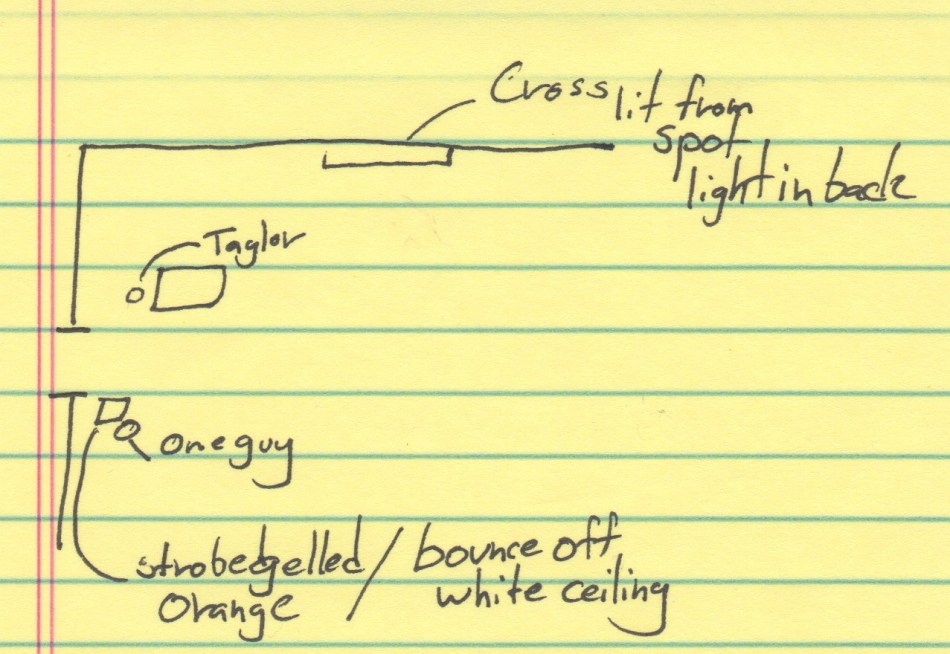 Cross lit from
spot
light in back
Taylor
one guy
strobe gelled / bounce off
orange white ceiling